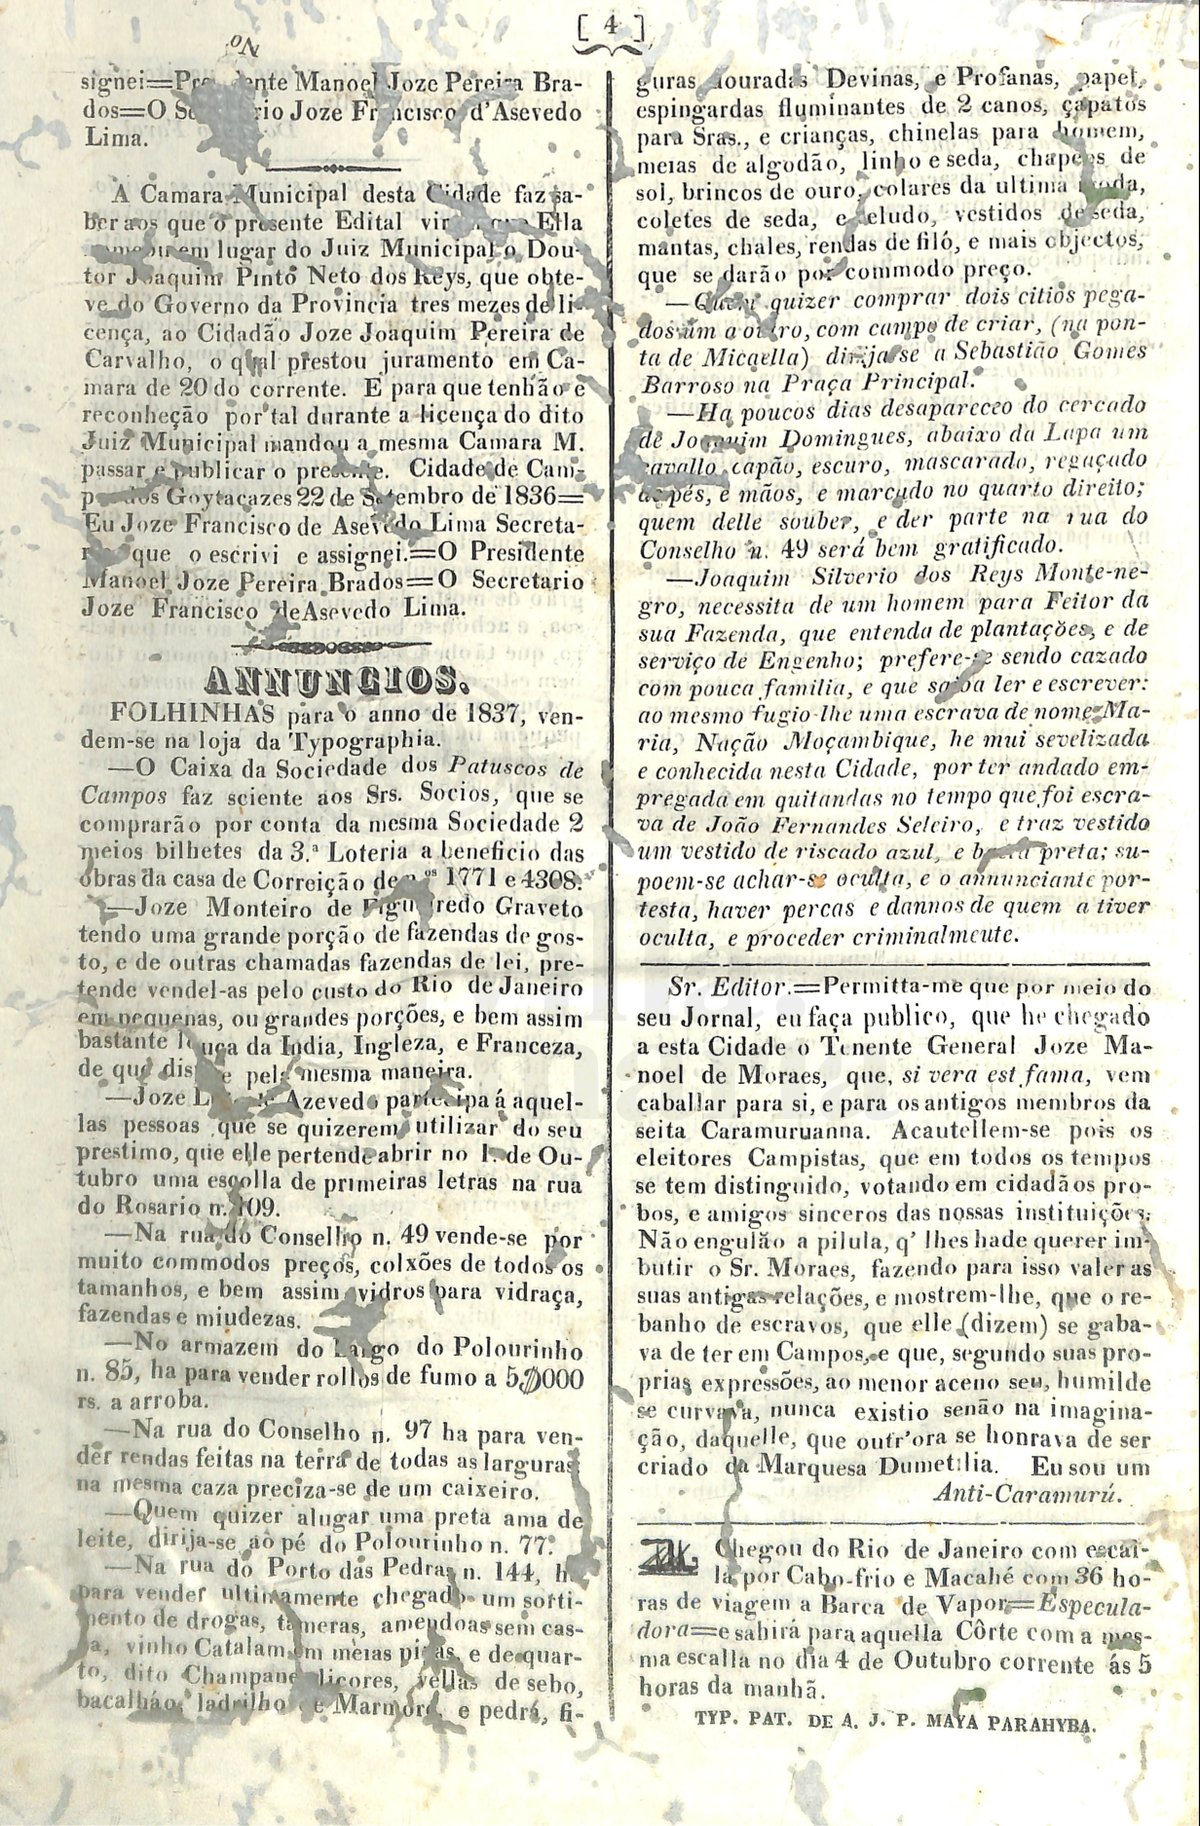 [ 4 ]
No
signei=Pre dente Manoel Joze Pereira Bra-
dos=O Se rio Joze Francisco d'Asevedo
Lima.
A Camara Municipal desta Cidade faz sa-
ber aos que o presente Edital vir Ella
em lugar do Juiz Municipal o Dou-
tor Joaquim Pinto Neto dos Reys, que obte-
ve do Governo da Provincia tres mezes de li-
cença, ao Cidadão Joze Joaquim Pereira de
Carvalho, o qual prestou juramento em Ca-
mara de 20 do corrente. E para que tenhão e
reconheção por tal durante a licença do dito
Juiz Municipal mandou a mesma Camara M.
passar e publicar o presente. Cidade de Cam-
pos dos Goytacazes 22 de Setembro de 1836=
Eu Joze Francisco de Asevedo Lima Secreta-
r que o escrivi e assignei.=O Presidente
Manoel Joze Pereira Brados=O Secretario
Joze Francisco de Asevedo Lima.
ANNUNCIOS.
FOLHINHAS para o anno de 1837, ven-
dem-se na loja da Typographia.
—O Caixa da Sociedade dos Patuscos de
Campos faz sciente aos Srs. Socios, que se
comprarão por conta da mesma Sociedade 2
meios bilhetes da 3.ª Loteria a beneficio das
obras da casa de Correição de n.os 1771 e 4308.
—Joze Monteiro de Figueiredo Graveto
tendo uma grande porção de fazendas de gos-
to, e de outras chamadas fazendas de lei, pre-
tende vendel-as pelo custo do Rio de Janeiro
em pequenas, ou grandes porções, e bem assim
bastante louça da India, Ingleza, e Franceza,
de que dis e pela mesma maneira.
—Joze L Azevedo participa á aquel-
las pessoas que se quizerem utilizar do seu
prestimo, que elle pertende abrir no 1. de Ou-
tubro uma escolla de primeiras letras na rua
do Rosario n. 109.
—Na rua do Conselho n. 49 vende-se por
muito commodos preços, colxões de todos os
tamanhos, e bem assim vidros para vidraça,
fazendas e miudezas.
—No armazem do Largo do Polourinho
n. 85, ha para vender rollos de fumo a 5$000
rs. a arroba.
—Na rua do Conselho n. 97 ha para ven-
der rendas feitas na terra de todas as larguras
na mesma caza preciza-se de um caixeiro.
—Quem quizer alugar uma preta ama de
leite, dirija-se ao pé do Polourinho n. 77.
—Na rua do Porto das Pedras n. 144, ha
para vender ultimamente chegado um sorti-
mento de drogas, tameras, amendoas sem cas-
ca, vinho Catalam em meias pipas, e de quar-
to, dito Champane licores, vellas de sebo,
bacalháo, ladrilho de Marmore, e pedra, fi-
guras douradas Devinas, e Profanas, papel,
espingardas fluminantes de 2 canos, çapatos
para Sras., e crianças, chinelas para homem,
meias de algodão, linho e seda, chapeos de
sol, brincos de ouro, colares da ultima moda,
coletes de seda, e veludo, vestidos de seda,
mantas, chales, rendas de filó, e mais objectos,
que se darão por commodo preço.
—Quem quizer comprar dois citios pega-
dos um a outro, com campo de criar, (na pon-
ta de Micaella) dirija-se a Sebastião Gomes
Barroso na Praça Principal.
—Ha poucos dias desapareceo do cercado
de Joaquim Domingues, abaixo da Lapa um
cavallo capão, escuro, mascarado, regaçado
de pés, e mãos, e marcado no quarto direito;
quem delle souber, e der parte na rua do
Conselho n. 49 será bem gratificado.
—Joaquim Silverio dos Reys Monte-ne-
gro, necessita de um homem para Feitor da
sua Fazenda, que entenda de plantações, e de
serviço de Engenho; prefere-se sendo cazado
com pouca familia, e que saiba ler e escrever:
ao mesmo fugio-lhe uma escrava de nome Ma-
ria, Nação Moçambique, he mui sevelizada
e conhecida nesta Cidade, por ter andado em-
pregada em quitandas no tempo que foi escra-
va de João Fernandes Seleiro, e traz vestido
um vestido de riscado azul, e baeta preta; su-
poem-se achar-se oculta, e o annunciante por-
testa, haver percas e dannos de quem a tiver
oculta, e proceder criminalmente.
Sr. Editor.=Permitta-me que por meio do
seu Jornal, eu faça publico, que he chegado
a esta Cidade o Tenente General Joze Ma-
noel de Moraes, que, si vera est fama, vem
caballar para si, e para os antigos membros da
seita Caramuruanna. Acautellem-se pois os
eleitores Campistas, que em todos os tempos
se tem distinguido, votando em cidadãos pro-
bos, e amigos sinceros das nossas instituições.
Não engulão a pilula, q' lhes hade querer im-
butir o Sr. Moraes, fazendo para isso valer as
suas antigas relações, e mostrem-lhe, que o re-
banho de escravos, que elle (dizem) se gaba-
va de ter em Campos, e que, segundo suas pro-
prias expressões, ao menor aceno seu, humilde
se curvava, nunca existio senão na imagina-
ção, daquelle, que outr'ora se honrava de ser
criado da Marquesa Dumetilia. Eu sou um
Anti-Caramurú.
Chegou do Rio de Janeiro com escal-
la por Cabo-frio e Macahé com 36 ho-
ras de viagem a Barca de Vapor=Especula-
dora=e sahirá para aquella Côrte com a mes-
ma escalla no dia 4 de Outubro corrente ás 5
horas da manhã.
TYP. PAT. DE A. J. P. MAYA PARAHYBA.